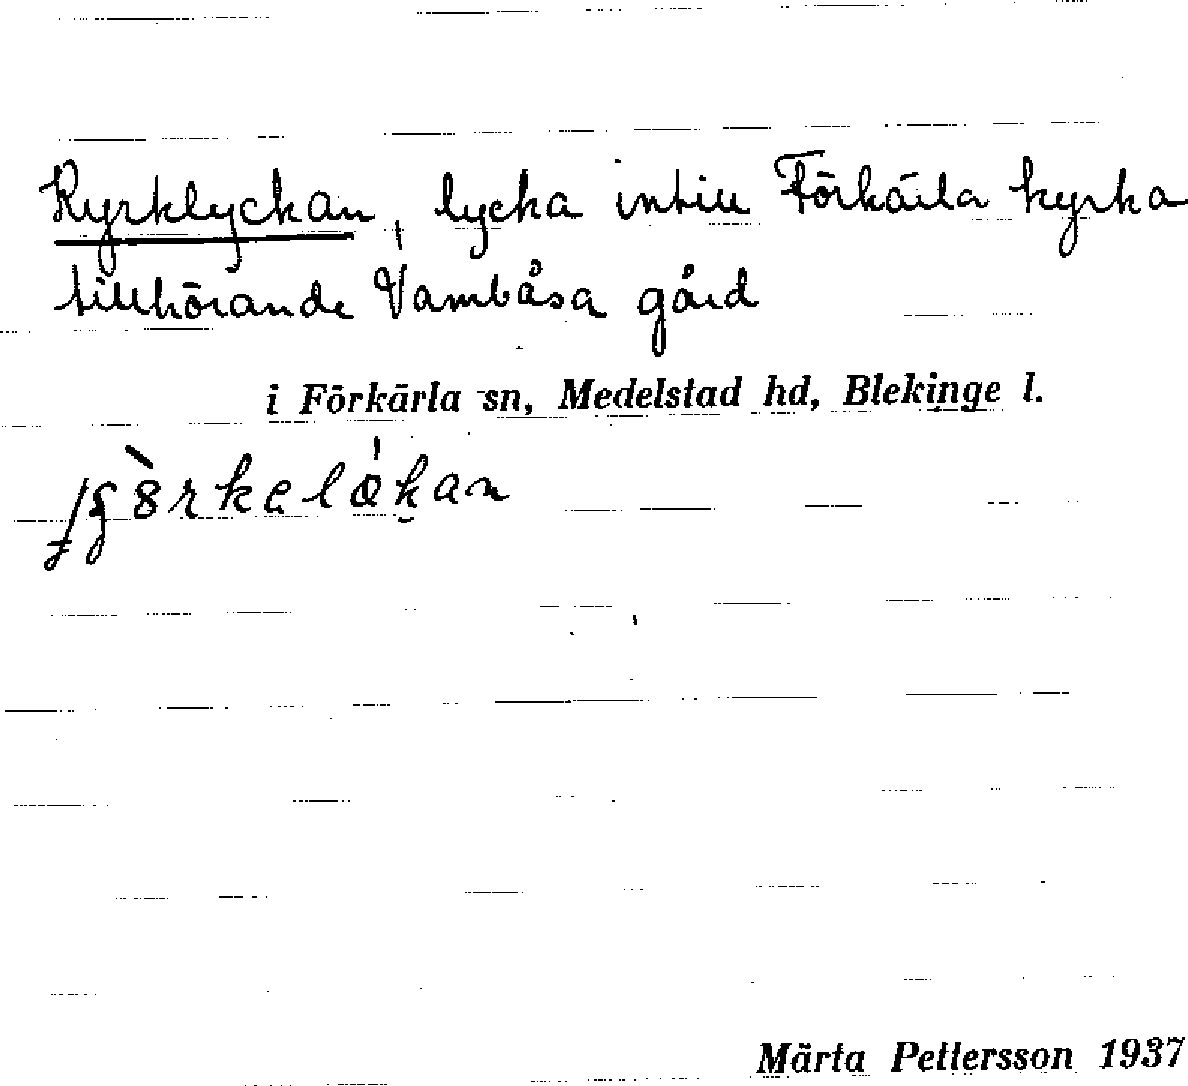 Kyrklyckan, lycka intill Förkärla kyrka
tillhörande Vambåsa gård
i Förkärla sn, Medelstad hd, Blekinge l.
Märta Pettersson 1937